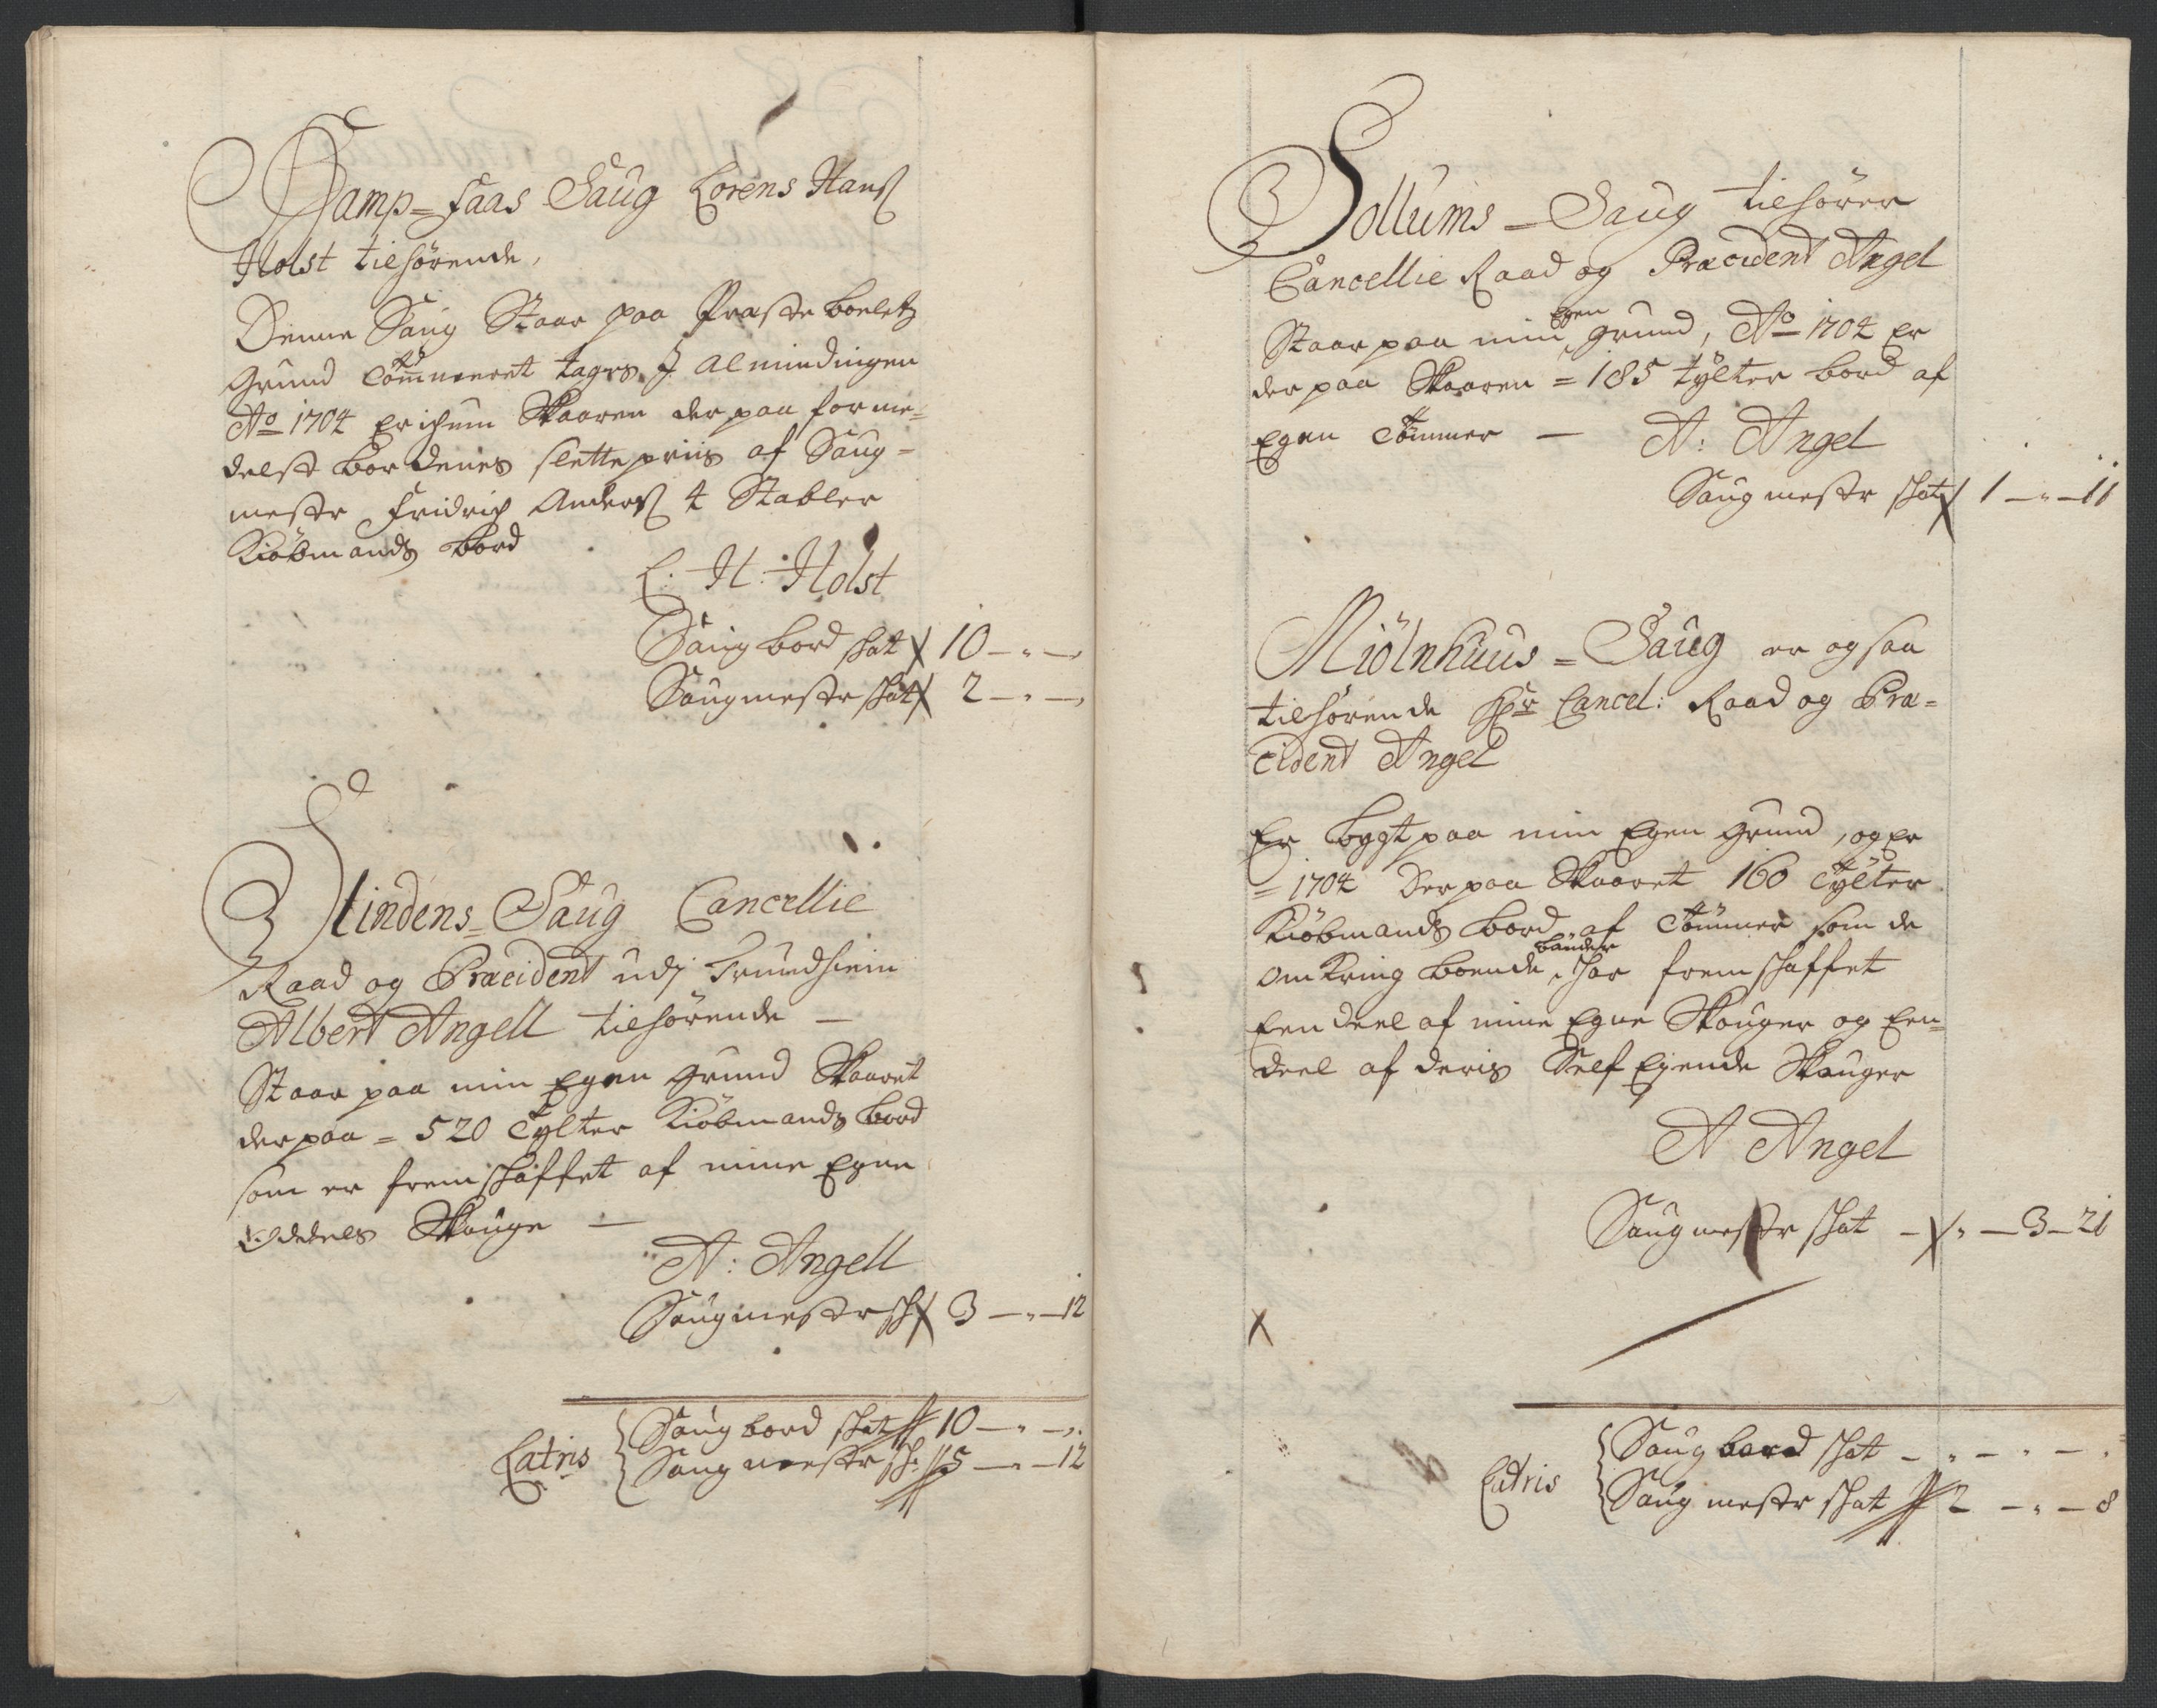 Damp-Faas Saug Lorens Hanß
Holst tilhørende,
Denne Saug Staar paa Præsteboeletz
Grund Tømmeret tages J Almindingen
Ao 1704 er ichun Skaaren der paa forme-
delst bordenes slette priis af Saug-
mestr Fridrich Anderß 4 Stabler
Kiöbmands bord
L: H: Holst
Saug bord skat 10 - " -
Saugmestr skat 2 - " -
Stindens-Saug Cancellie
Raad og Præcident udj Trundhiem
Albert Angell tilhørende -
Staar paa min Egen grund Skaaret
der paa = 520 Tylter Kiöbmands bord
som er fremskaffet af mine Egne
Oddels Skouge -
A: Angell
Saugmestr sk 3 - " - 12
Latris Saug bord skat 10 - " -
Saug mestr sk: 5 - " - 12
Sollums-Saug tilhører
Cancellie Raad og Præcident Angel
Staar paa min egen grund, Ao 1704 er
der paa Skaaren = 185 tÿlter bord af
Egen Tömmer - A: Angel
Saug mestr skat 1 - " - 11
Miölnhuus-Saug er og saa
tilhørende Hr Cancel: Raad og Præ-
cident Angel
Er bygt paa min Egen grund, og er
= 1704 der paa Skaaret 160 Tÿlter
Kiöbmands bord af Tömmer som de
omkring boende bönder har fremskaffet
Een deel af mine Egne Skouger og Een-
deel af deris Self Eyende Skouger
A Angel
Saugmestr skat - " - 3 - 21
Latris Saug bord skat - " - " -
Saug mestr skat 2 - " - 8